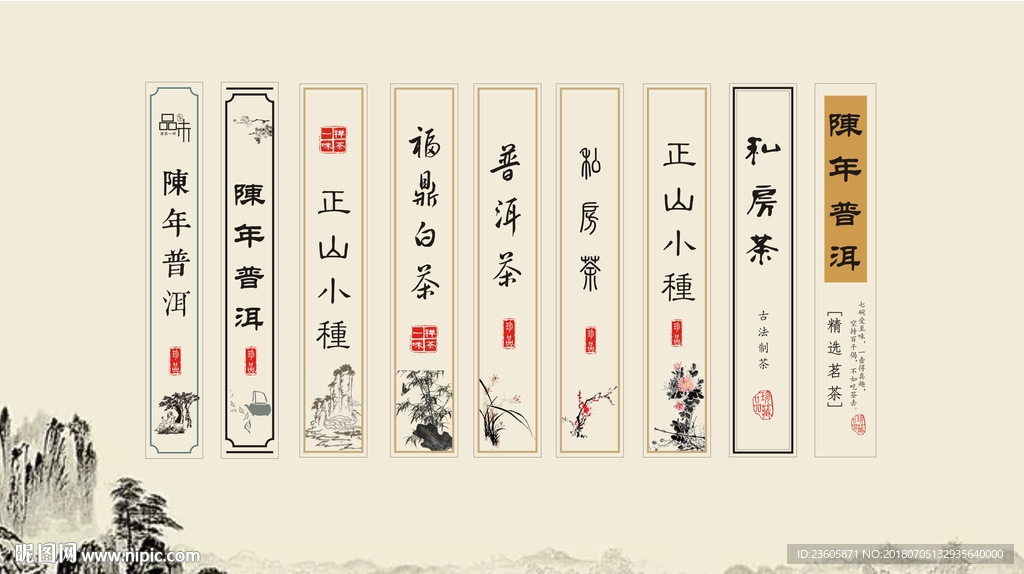 品味
陳年普洱
珍品
陳年普洱
珍品
一味禅茶
正山小種
福鼎白茶
一味禅茶
普洱茶
珍品
私房茶
珍品
正山小種
珍品
私房茶
古法制茶
珍藏
陳年普洱
[精选茗茶]
七碗受至味，一壶得真趣，
空持百千偈，不如吃茶去。
昵图网 www.nipic.com
ID:23605871 NO:20180705132935640000